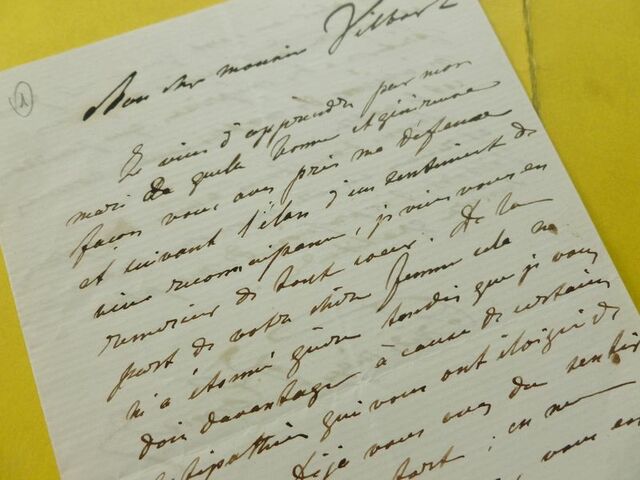 1
Mon cher monsieur Vilbort
Je viens d'apprendre par mon
mari de quelle bonne et généreuse
façon vous avez pris ma défense
et suivant l'élan d'un sentiment de
vive reconnaissance, je viens vous en
remercier de tout coeur. De la
part de votre chère femme cela ne
m'a étonné guère tandis que je vous
dois davantage à cause de certaines
antipathies qui vous ont éloigné de
Déjà vous avez du sentir
tort ; en me
vous en